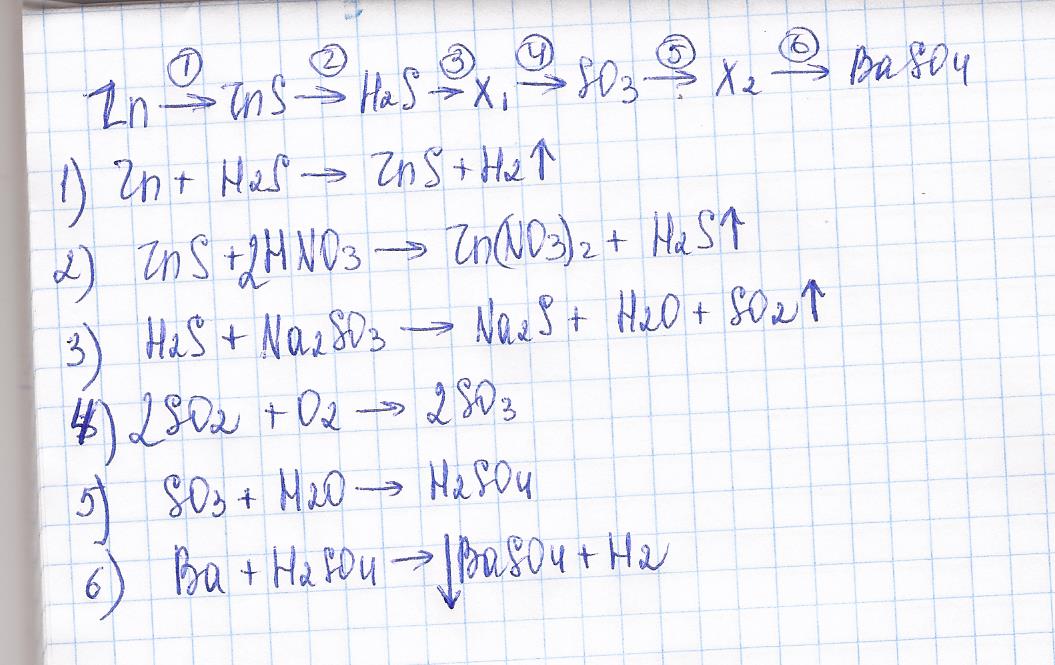 ① ② ③ ④ ⑤ ⑥
Zn → ZnS → H2S → X1 → SO3 → X2 → BaSO4
1) Zn + H2S → ZnS + H2↑
2) ZnS + 2HNO3 → Zn(NO3)2 + H2S↑
3) H2S + Na2SO3 → Na2S + H2O + SO2↑
4) 2SO2 + O2 → 2SO3
5) SO3 + H2O → H2SO4
6) Ba + H2SO4 → ↓BaSO4 + H2